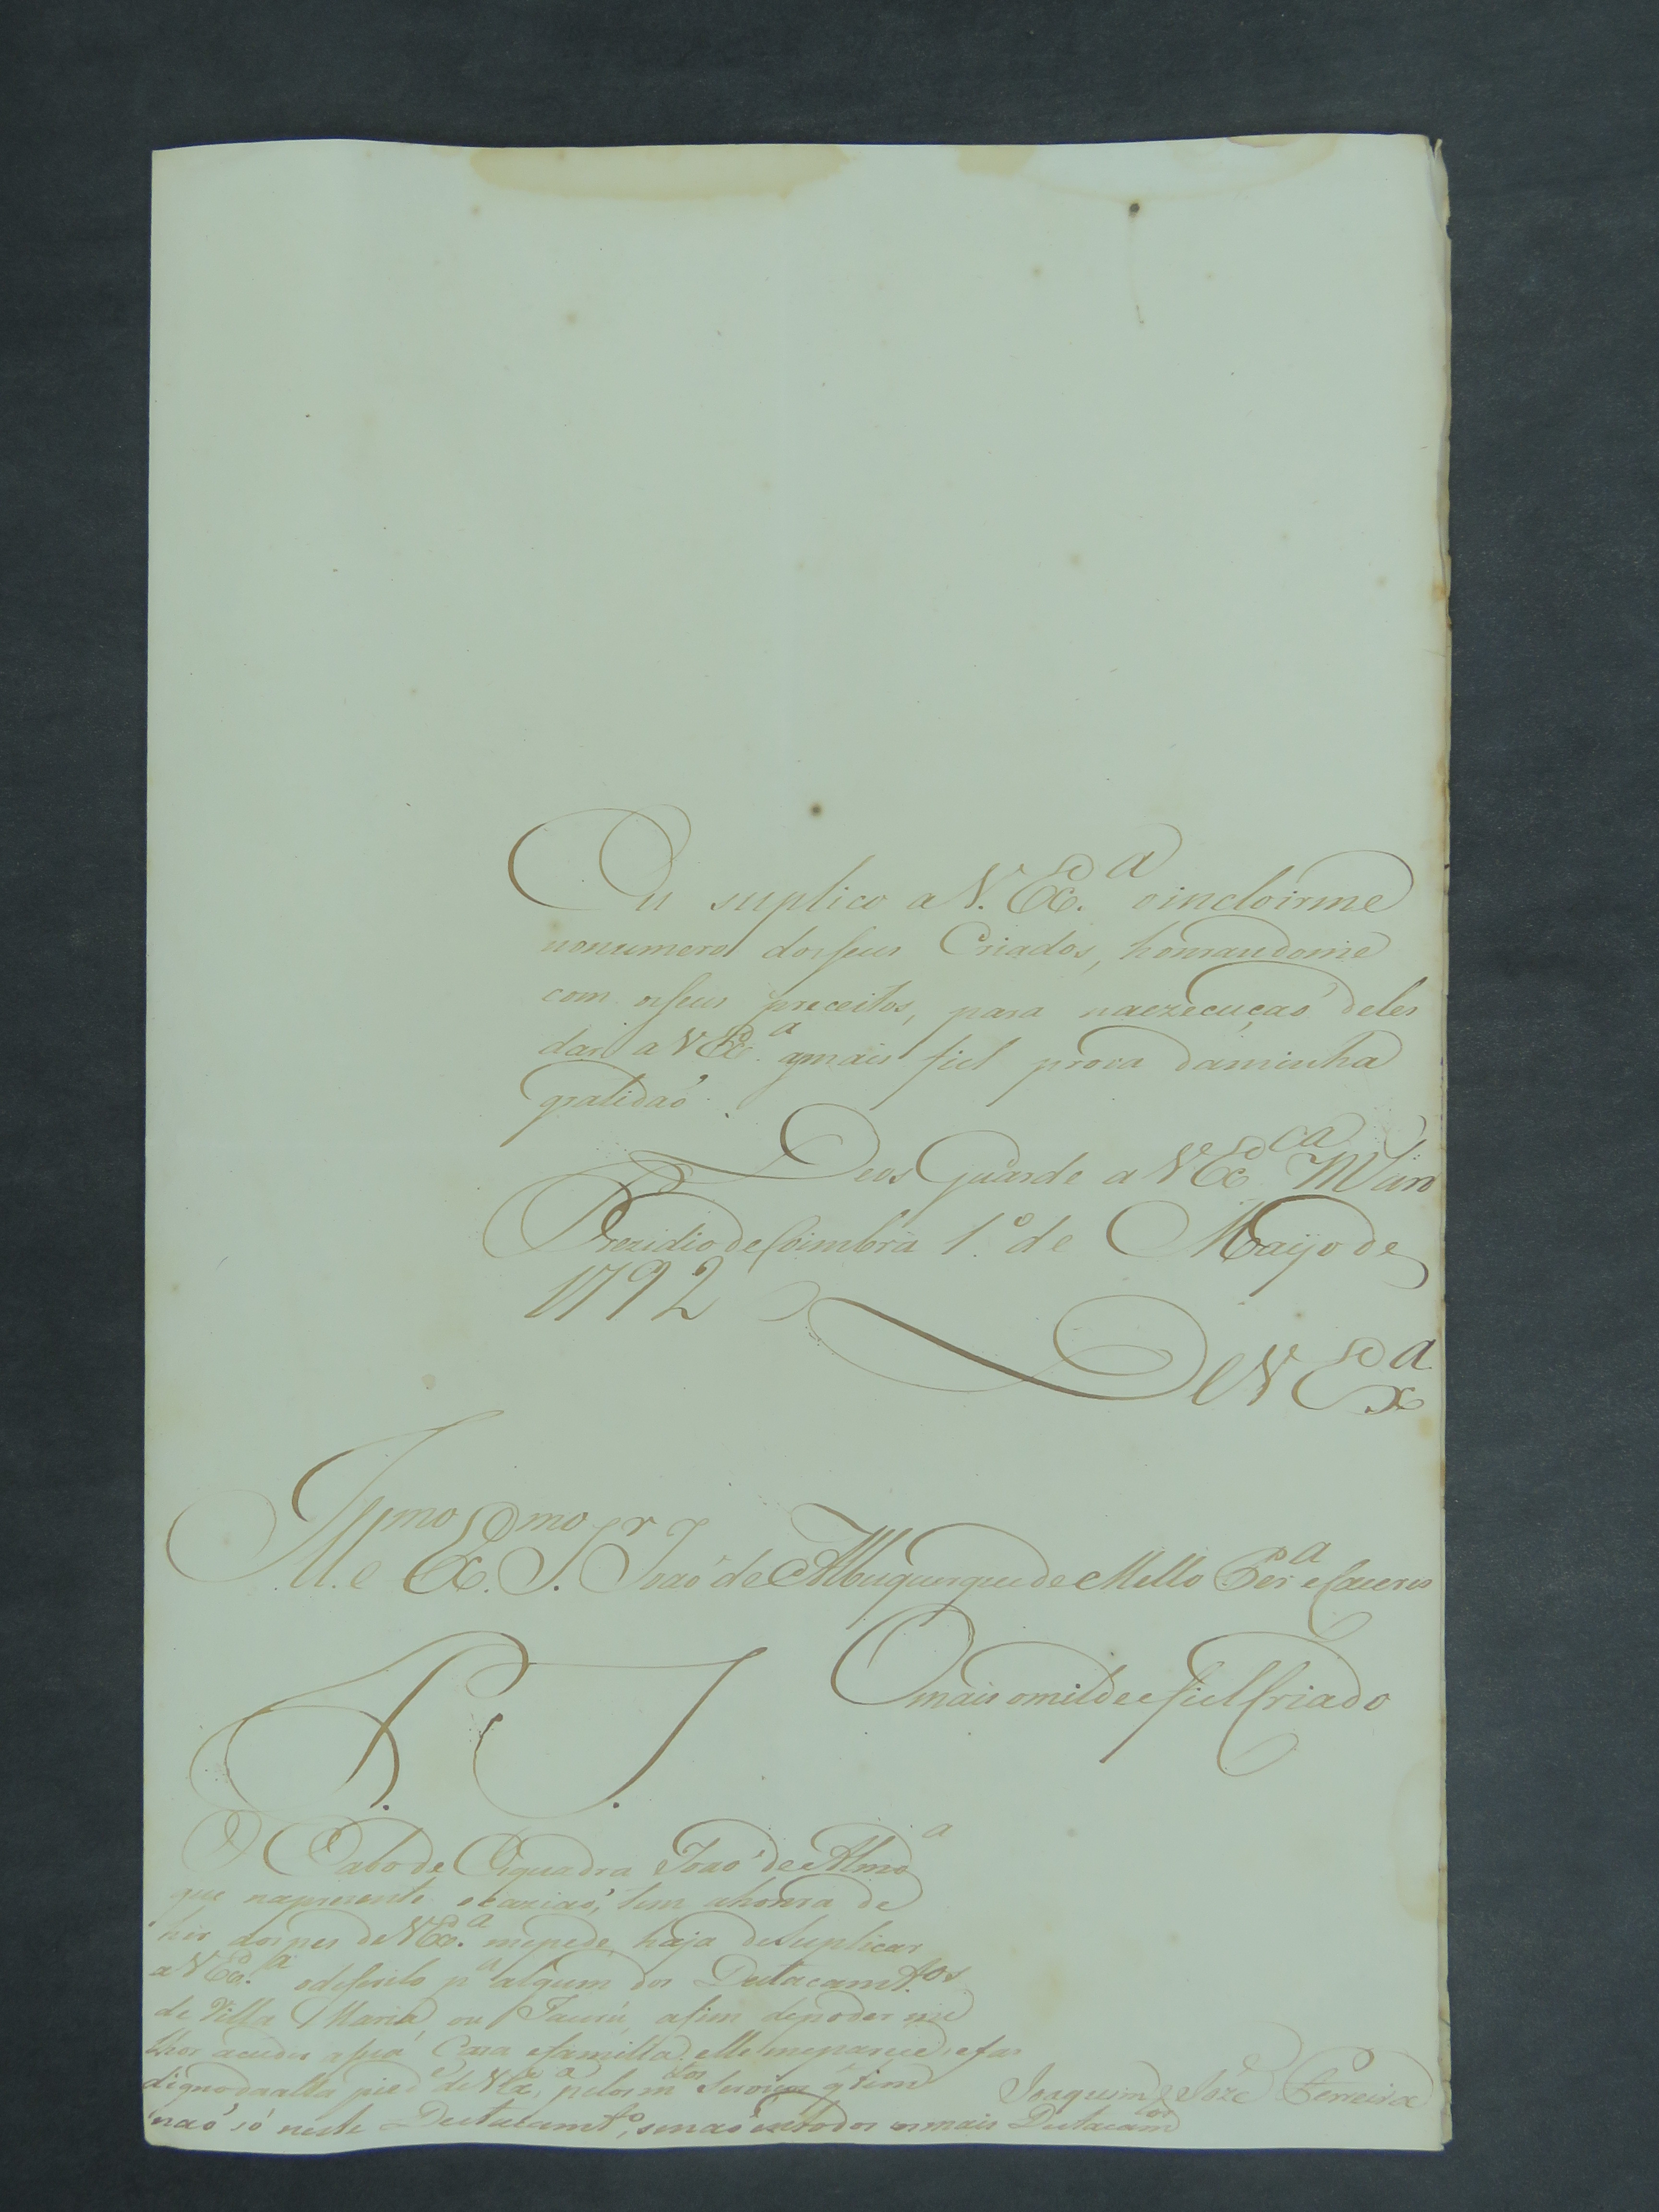 Eu suplico a V. Exª o incloirme
nonumero dosseus Criados, honrandome
com osseus preceitos, para naezecuçaó deles
dar a V Exª amais fiel prova daminha
gratidaó.
Deos Guarde a V Excª M. an.
Prezidio de Coimbra 1.º de Mayo de
1792
De V Exª
Illmo e Exmo Sr. Joaó de Albuquerque de Mello Perª e Caceres
O mais omilde e fiel Criado
P. S.
O Cabo de Esquadra Joaó de Almdª
que napresente ocaziaó, tem ahonra de
hir aos pes de V Exª. mepede haja de Suplicar
a V Exª. odestiulo pª algum dos Destacamtos
de Villa Maria, ou Jaurú, afim depoder me
lhor acudir asua Caza efamilia; elle meparece sefas
dignodaalta piede de V Exª, pelos mtos Serviços q tem
naó só neste Destacamto, senaó emtodos osmais Destacamtos
Joaquim Joze Ferreira